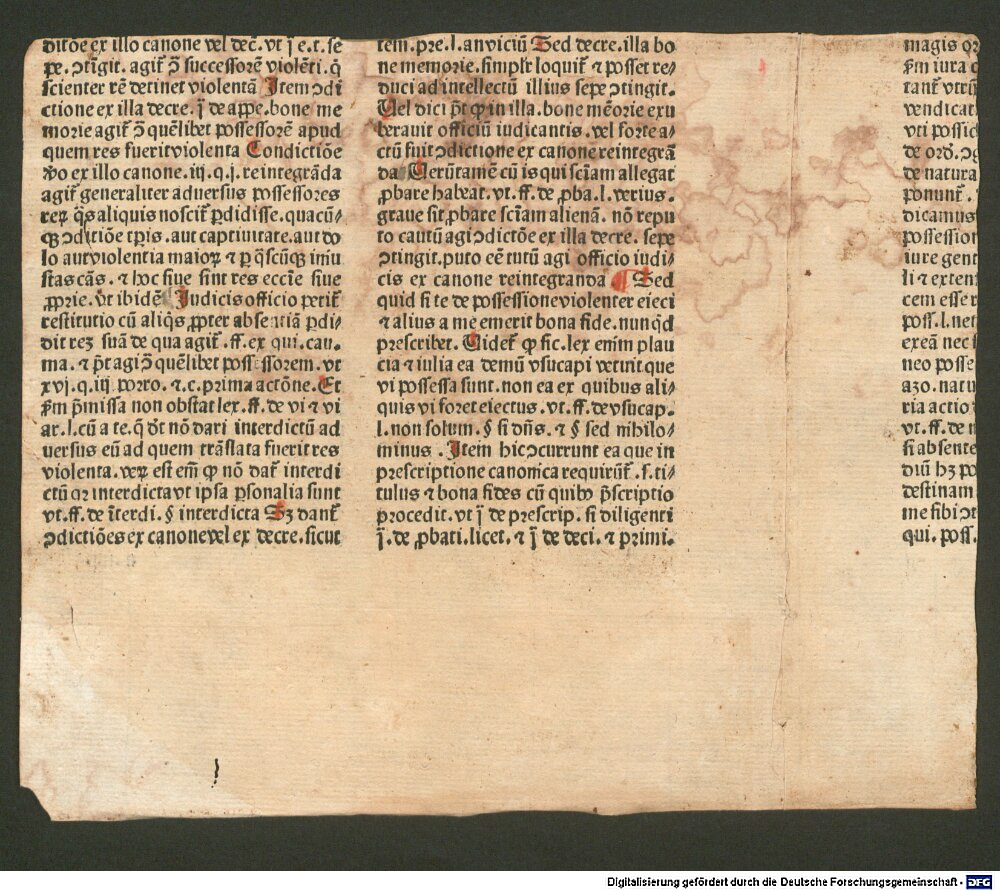 ditōe ex illo canone vel dec̄. vt ī e. t. se
pe. ꝯtīgit. agit̄ ꝯ̄ successorē violēti. q̄
scienter rē detinet violentā Item ꝯdi
ctione ex illa decre. ī de appe. bone me
morie agit̄ ꝯ̄ quēlibet possessorē apud
quem res fuerit violenta Condictiōe
v̊o ex illo canone. iij. q. j. reintegrāda
agit̄ generaliter adversus possessores
reꝝ q̄s aliquis noscit̄ ꝑdidisse. quacū⸗
qꝫ ꝯditiōe tꝑis. aut captiuitate. aut do
lo aut violentia maioꝝ ⁊ ꝑ q̄scūqꝫ iniu
stas cās. ⁊ hoc siue sint res eccīe siue
ꝓprie. vt ibidē Iudicis officio petit̄
restitutio cū aliq̄s ꝓpter absentiā ꝑdi⸗
dit reꝫ suā de qua agit̄. ff. ex qui. cau.
ma. ⁊ p̄t agi ꝯ̄ quēlibet possessorem. vt
xvj. q. iij porro. ⁊ .c. prima actōne. Et
ẜm p̄missa non obstat lex. ff. de vi ⁊ vi
ar. l. cū a te. q̄ dt̄ nō dari interdictū ad
uersus eū ad quem trāslata fuerit res
violenta. veꝝ est em̄ ꝙ nō dat̄ interdi
ctū qꝛ interdicta vt ipsa ꝑsonalia sunt
vt. ff. de īterdi. § interdicta Sꝫ dant̄
ꝯdictiōes ex canone vel ex decre. sicut
tem. pre. l. an viciū Sed decre. illa bo
ne memorie. simpłr loquit̄ ⁊ posset re⸗
duci ad intellectū illius sepe ꝯtingit.
Uel dici p̄t ꝙ in illa. bone mēorie exu
berauit officiū iudicantis. vel forte a⸗
ctū fuit ꝯdictione ex canone reintegrā
da Uerūtamē cū is qui sciam allegat
ꝓbare habeat. vt. ff. de ꝓba. l. verius.
graue sit ꝓbare scīam alienā. nō repu
to cautū agi ꝯdictōe ex illa decre. sepe
ꝯtingit. puto eē tutū agi officio iudi⸗
cis ex canone reintegranda ¶ Sed
quid si te de possessione violenter eieci
⁊ alius a me emerit bona fide. nunq̇d
prescribet. Uidet̄ ꝙ sic. lex enīm plau
cia ⁊ iulia ea demū vsucapi vetuit que
vi possessa sunt. non ea ex quibus ali⸗
quis vi foret eiectus. vt. ff. de vsucap.
l. non solum. § si dn̄s. ⁊ § sed nihilo⸗
minus. Item hic ꝯcurrunt ea que in
prescriptione canonica requirūt̄. s. ti⸗
tulus ⁊ bona fides cū quibꝰ p̄scriptio
procedit. vt ī de prescrip. si diligenti
ī. de ꝓbati. licet. ⁊ ī de deci. ⁊ primi.
magis
ẜm iura
tant̄ vtrū
vendicat
vti possid
de ord.
de natura
ponunt̄.
dicamus
possession
iure gent
li ⁊ exten
cem esse r
poss. l. net
exeā nec
neo posse
azo. natu
ria actio
vt. ff. de
si absente
diū hꝫ po
destinam
me sibi ꝯt
qui. poss.
Digitalisierung gefördert durch die Deutsche Forschungsgemeinschaft - DFG